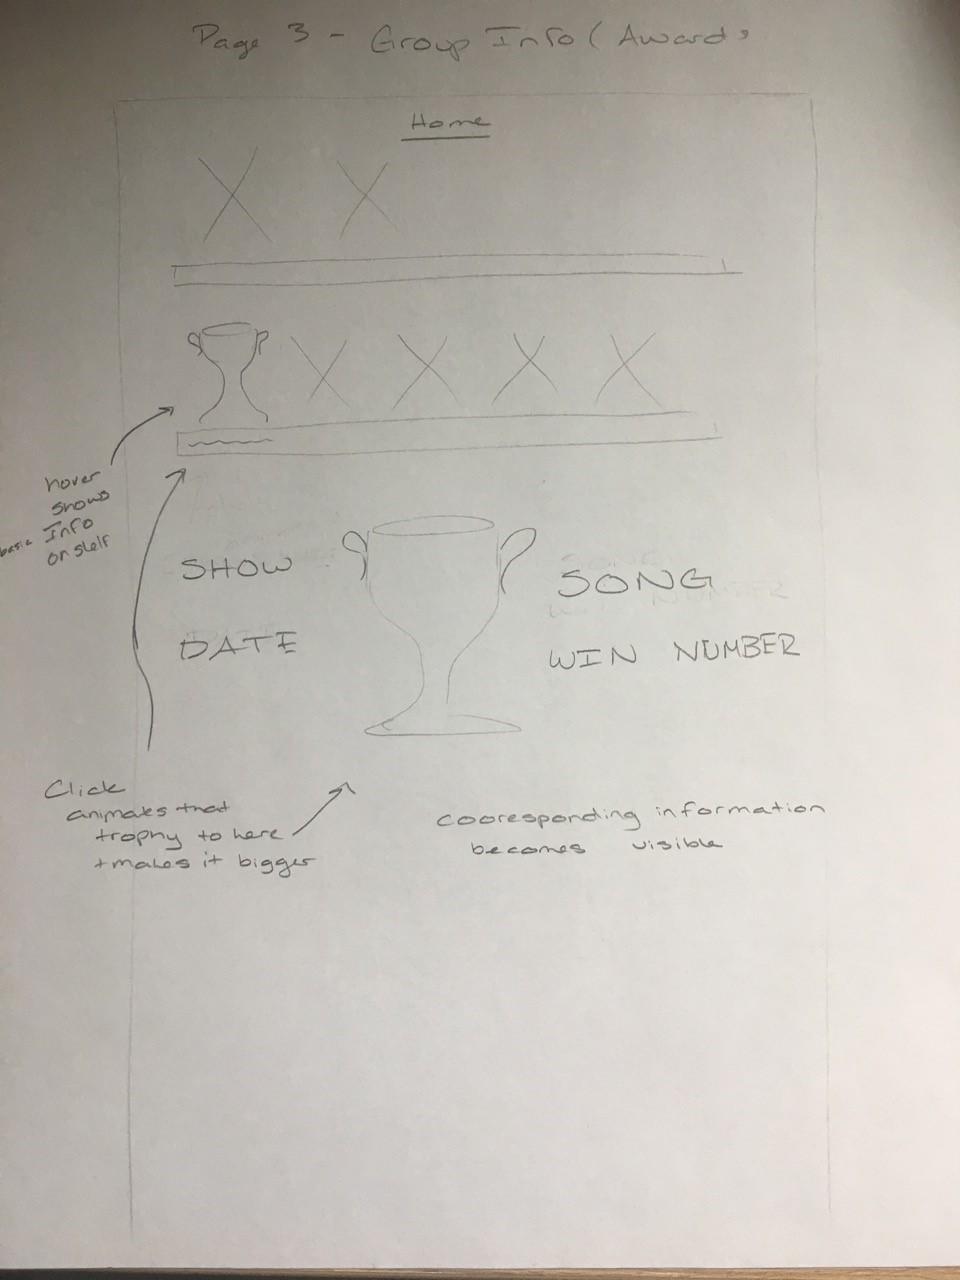 Page 3 - Group Info ( Awards
Home
hover
shows
basic Info
on shelf
SHOW
SONG
DATE
WIN NUMBER
Click
animates that
trophy to here
+ makes it bigger
cooresponding information
becomes visible